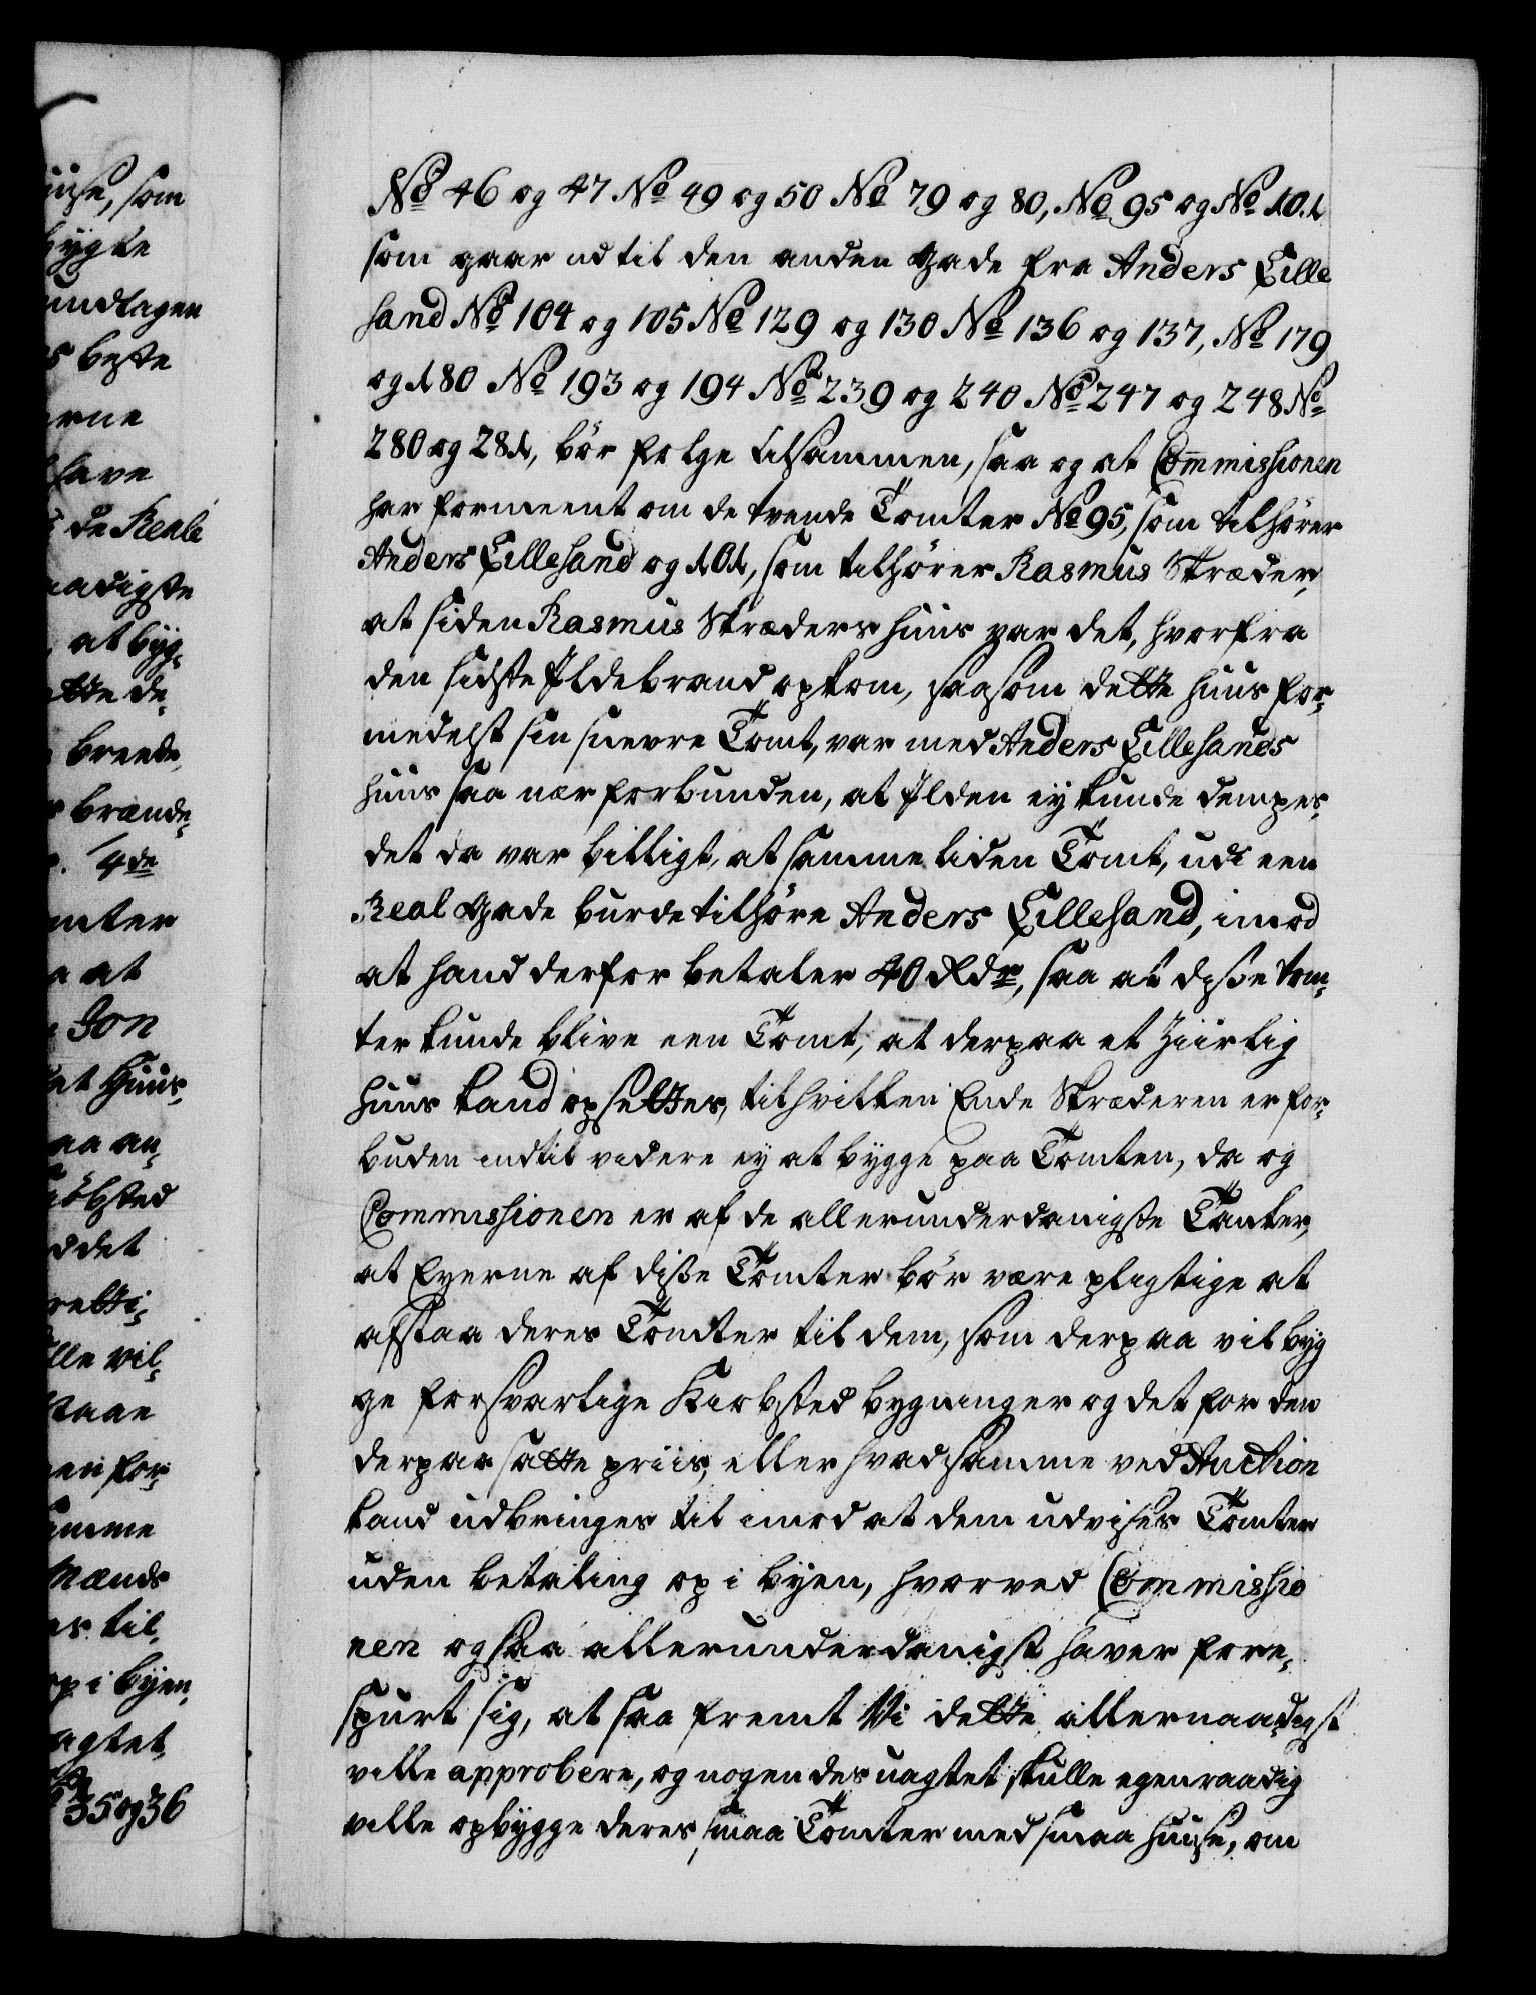 uuse, som
bygte
undtagen
s beste
erne
have
de Reale
aadigste
, at byg¬
ette de¬
breede
brænde¬
. 4de
mter
a at
Jon
et Huus,
aa an¬
kiöbsted
ddet
rette¬
lle vil¬
staae
en for¬
amme
Mænds
es til¬
op i byen,
agtet,
35 og 36
No 46 og 47 No 49 og 50 No 79 og 80, No 95 og No 101
som gaar ud til den anden Gade fra Anders Lille
sand No 104 og 105 No 129 og 130 No 136 og 137, No 179
og 180 No 193 og 194 No 239 og 240 No 247 og 248 No
280 og 281, bör folge tilsammen, saa og at Commissionen
har formeent om de tvende Tomter No 95, som tilhörer
Anders Lillesand og 101, som tilhörer Rasmus Skræder,
at siden Rasmus Skræders huus var det, hvorfra
den sidste Ildebrand opkom, saasom dette huus for¬
medelst sin snevre Tomt, var med Anders Lillesands
huus saa nær forbunden, at Ilden ey kunde dempes,
det da var billigt, at samme liden Tomt, udi een
Real Gade burde tilhöre Anders Lillesand, imod
at hand derfor betaler 40 Rdr, saa at disse tom¬
ter kunde blive een Tomt, at derpaa et Ziirlig
huus kand opsettes, til hvilken Ende Skræderen er for¬
buden indtil videre ey at bygge paa Tomten, da og
Commissionen er af de allerunderdanigste Tanker,
at Eyerne af disse Tomter bör være pligtige at
afstaa deres Tomter til dem, som derpaa vil byg
ge forsvarlige Kiobsted bygninger og det for den
derpaa satte priis, eller hvad samme ved Auction
kand udbringes til imod at dem udvises Tomter
uden betaling op i byen, hvorved Commissio
nen ogsaa allerunderdanigst haver fore¬
spurt sig, at saa fremt Vi dette allernaadigst
ville approbere, og nogen des uagtet skulle egenraadig
ville opbygge deres smaa Tomter med smaa huuse, om